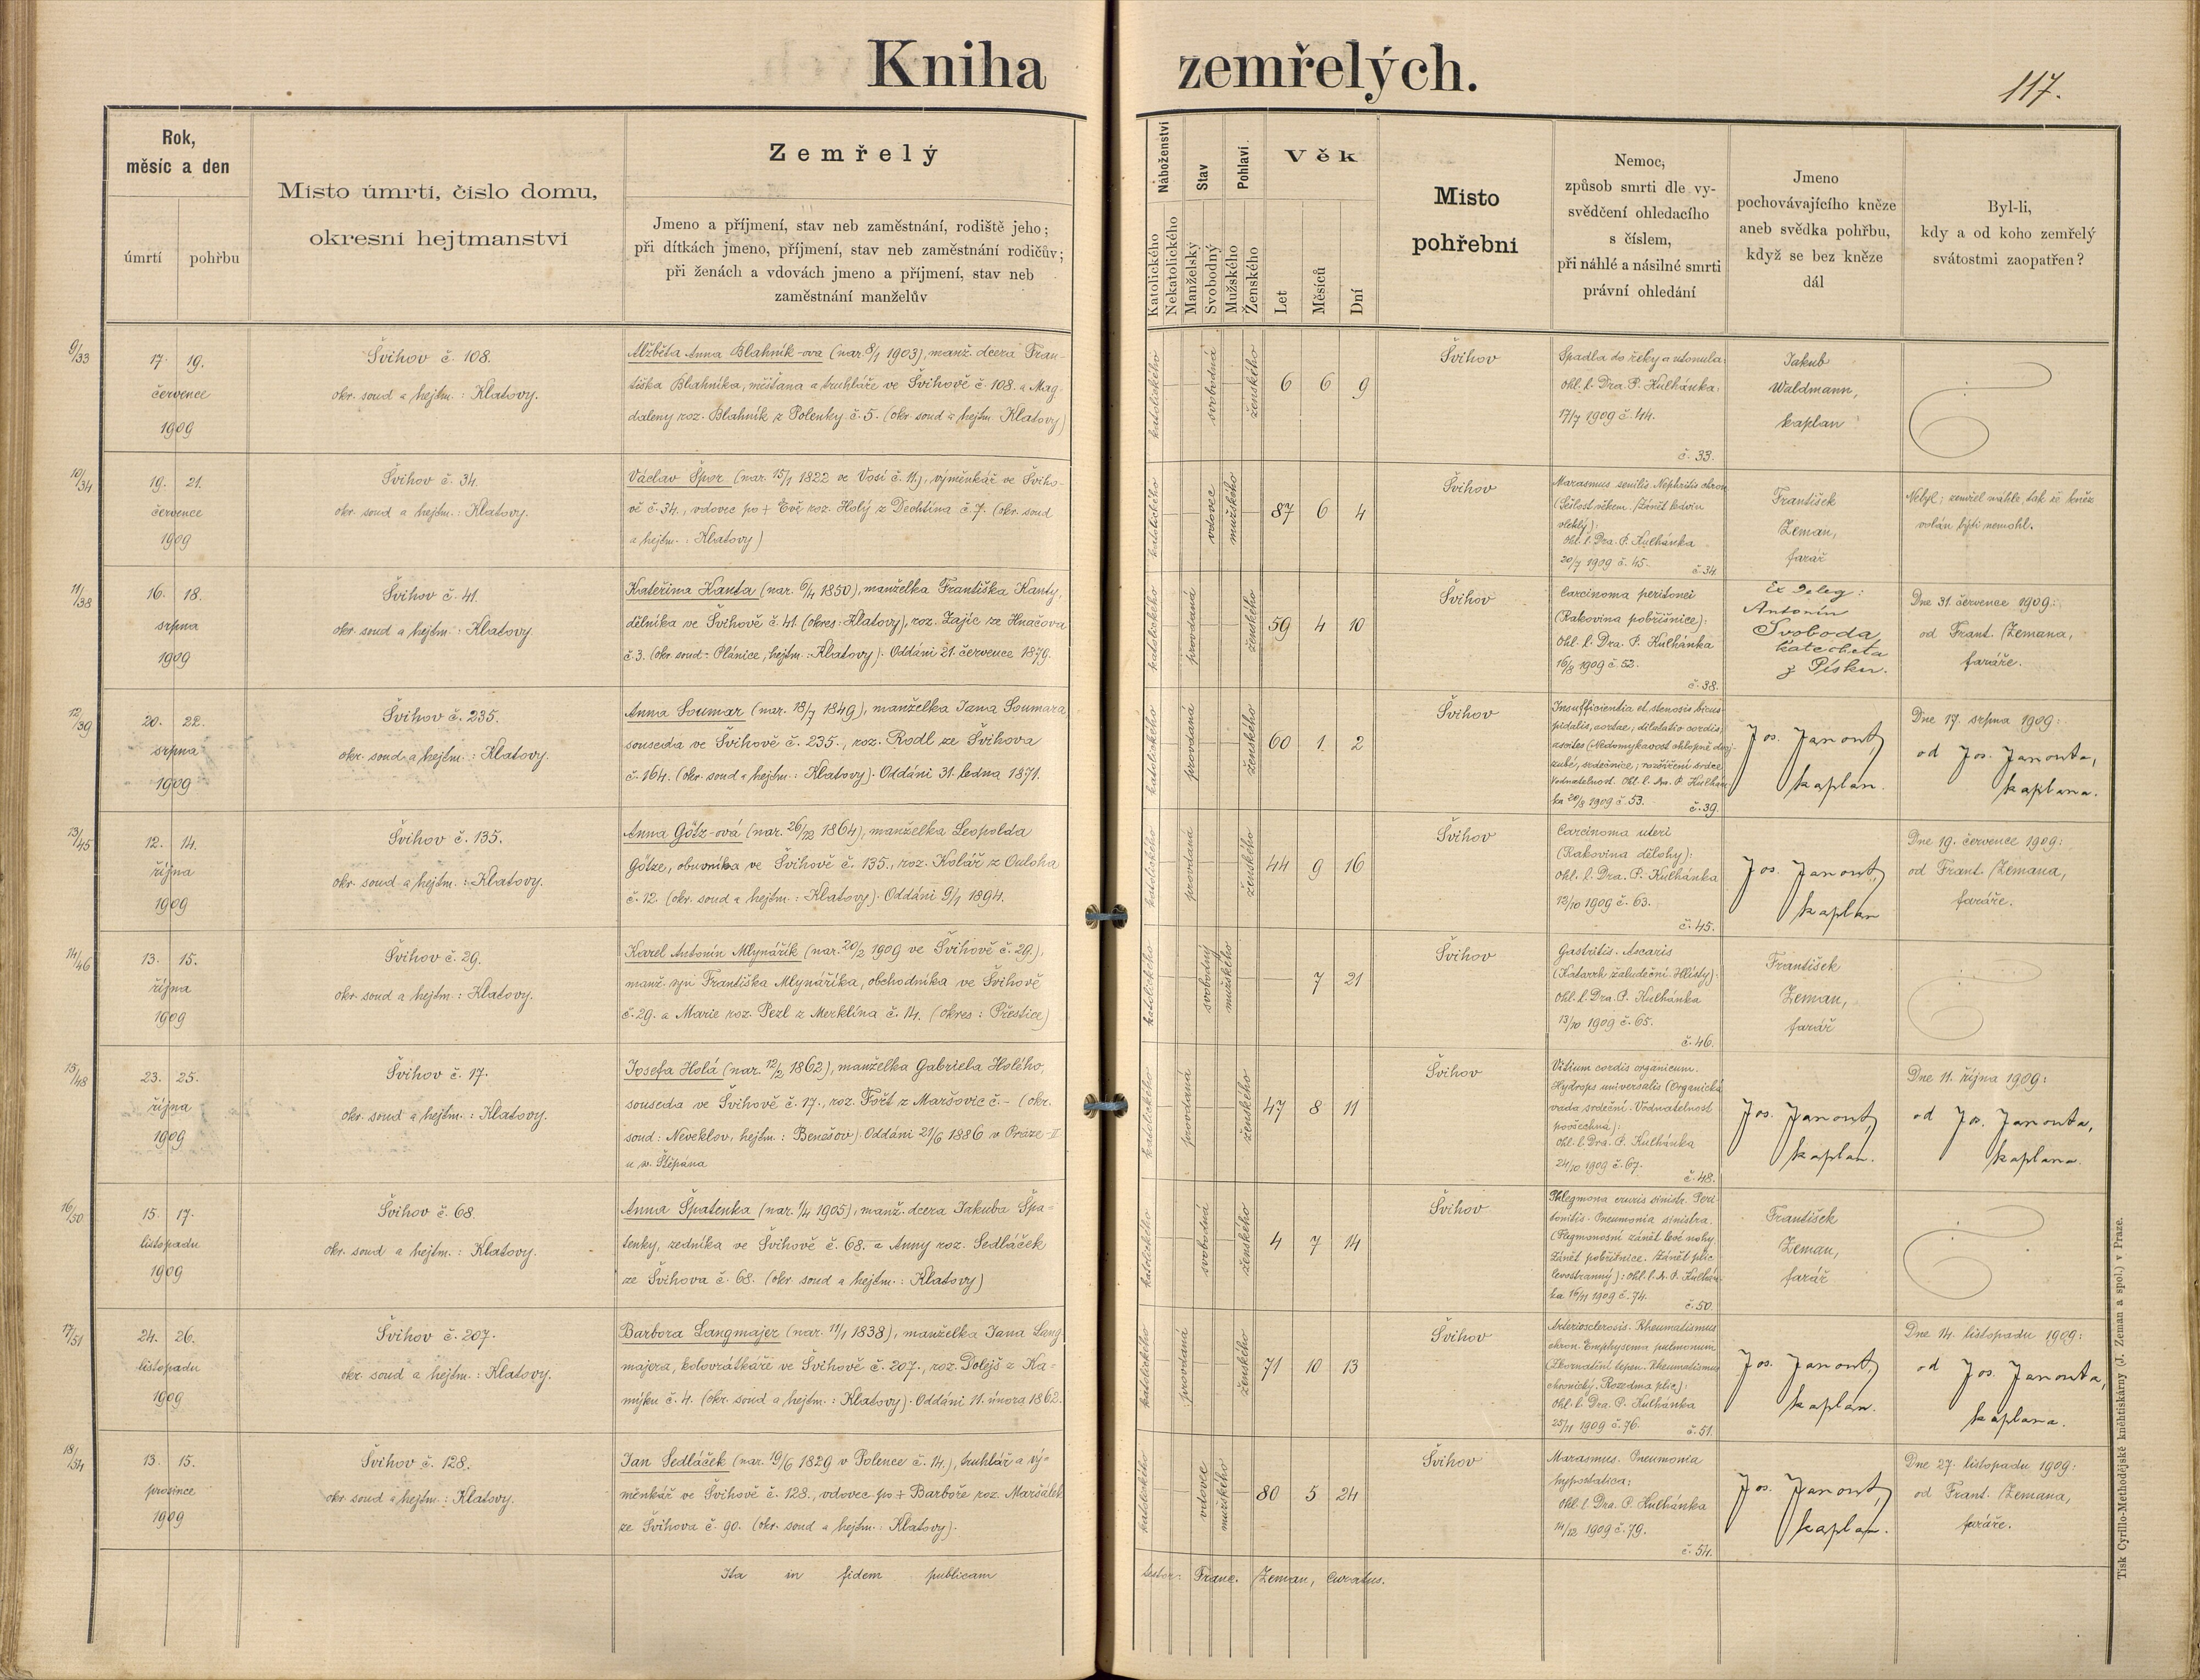 Kniha zemřelých.
117.
Rok,
měsíc a den
úmrtí
pohřbu
Místo úmrtí, číslo domu,
okresní hejtmanství
Zemřelý
Jmeno a příjmení, stav neb zaměstnání, rodiště jeho;
při dítkách jmeno, příjmení, stav neb zaměstnání rodičův;
při ženách a vdovách jmeno a příjmení, stav neb
zaměstnání manželův
Náboženství
Katolického
Nekatolického
Stav
Manželský
Svobodný
Pohlaví.
Mužského
Ženského
Věk
Let
Měsíců
Dní
Místo
pohřební
Nemoc,
způsob smrti dle vy-
svědčení ohledacího
s číslem,
při náhlé a násilné smrti
právní ohledání
Jmeno
pochovávajícího kněze
aneb svědka pohřbu,
když se bez kněze
dál
Byl-li,
kdy a od koho zemřelý
svátostmi zaopatřen?
9/33
17. 19.
července
1909
Švihov č. 108.
okr. soud a hejtm.: Klatovy.
Alžběta Anna Blahník-ova (nar. 8/1 1903), manž. dcera Fran-
tiška Blahníka, měšťana a truhláře ve Švihově č. 108. a Mag-
daleny roz. Blahník z Polenky č. 5. (okr. soud a hejtm. Klatovy)
katolického
svobodná
ženského
6 6 9
Švihov
Spadla do řeky a utonula:
Ohl. l. Dra. P. Kulhánka:
17/7 1909 č. 44.
č. 33.
Jakub
Waldmann,
kaplan
10/34
19. 21.
července
1909
Švihov č. 34.
okr. soud a hejtm.: Klatovy.
Václav Špor (nar. 15/1 1822 ve Vosí č. 11.), výměnkář ve Švího-
vě č. 34., vdovec po + Evě roz. Holý z Dechtína č. 7. (okr. soud
a hejtm.: Klatovy)
katolického
vdovec
mužského
87 6 4
Švihov
Marasmus senilis Nephritis chron
(Sešlost věkem. Zánět ledvin
vleklý):
Ohl. l. Dra. P. Kulhánka
20/7 1909 č. 45.
č. 34.
František
Zeman,
farář
Nebyl; zemřel náhle, tak že kněz
volán býti nemohl.
11/38
16. 18.
srpna
1909
Švihov č. 41.
okr. soud a hejtm.: Klatovy.
Kateřina Kanta (nar. 6/4 1850), manželka Františka Kanty,
dělníka ve Švihově č. 41. (okres: Klatovy), roz. Zajíc ze Hnačova
č. 3. (okr. soud: Plánice, hejtm.: Klatovy). Oddáni 21. července 1879.
katolického
provdaná
ženského
59 4 10
Švihov
Carcinoma peritonei
(Rakovina pobřišnice):
Ohl. l. Dra. P. Kulhánka
16/8 1909 č. 52.
č. 38.
Ex Deleg:
Antonín
Svoboda,
katecheta
z Písku.
Dne 31. července 1909:
od Frant. Zemana,
faráře.
12/39
20. 22.
srpna
1909
Švihov č. 235.
okr. soud a hejtm.: Klatovy.
Anna Soumar (nar. 18/7 1849), manželka Jana Soumara
souseda ve Švihově č. 235., roz. Rodl ze Švihova
č. 164. (okr. soud a hejtm.: Klatovy). Oddáni 31. ledna 1871.
katolického
provdaná
ženského
60 1 2
Švihov
Insufficientia et stenosis bicus-
pidalis, aortae; dilatatio cordis,
ascites (Nedomykavost chlopně dvoj-
zubé, srdečnice; rozšíření srdce
Vodnatelnost. Ohl. l. Dra. P. Kulhán-
ka 20/8 1909 č. 53.
č. 39.
Jos. Janout,
kaplan.
Dne 17. srpna 1909:
od Jos. Janouta,
kaplana.
13/45
12. 14.
října
1909
Švihov č. 135.
okr. soud a hejtm.: Klatovy.
Anna Götz-ová (nar. 26/12 1864), manželka Leopolda
Götze, obuvníka ve Švihově č. 135., roz. Kolář z Ouloha
č. 12. (okr. soud a hejtm.: Klatovy). Oddáni 9/1 1894.
katolického
provdaná
ženského
44 9 16
Švihov
Carcinoma uteri
(Rakovina dělohy):
Ohl. l. Dra. P. Kulhánka
12/10 1909 č. 63.
č. 45.
Jos. Janout,
kaplan
Dne 19. července 1909:
od Frant. Zemana,
faráře.
14/46
13. 15.
října
1909
Švihov č. 29.
okr. soud a hejtm.: Klatovy.
Karel Antonín Mlynářík (nar. 20/2 1909 ve Švihově č. 29.),
manž. syn Františka Mlynáříka, obchodníka ve Švihově
č. 29. a Marie roz. Pezl z Merklína č. 14. (okres: Přeštice)
katolického
svobodný
mužského
7 21
Švihov
Gastritis. Ascaris
(Katarrh žaludeční. Hlísty):
Ohl. l. Dra. P. Kulhánka
13/10 1909 č. 65.
č. 46.
František
Zeman,
farář
15/48
23. 25.
října
1909
Švihov č. 17.
okr. soud a hejtm.: Klatovy.
Josefa Holá (nar. 12/2 1862), manželka Gabriela Holého,
souseda ve Švihově č. 17., roz. Fořt z Maršovic č. - (okr.
soud: Neveklov, hejtm.: Benešov). Oddáni 21/6 1886 v Praze-II
u sv. Štěpána
katolického
provdaná
ženského
47 8 11
Švihov
Vitium cordis organicum.
Hydrops universalis (Organická
vada srdeční. Vodnatelnost
povšechná):
Ohl. l. Dra. P. Kulhánka
24/10 1909 č. 67.
č. 48.
Jos. Janout,
kaplan.
Dne 11. října 1909:
od Jos. Janouta,
kaplana.
16/50
15. 17.
listopadu
1909
Švihov č. 68.
okr. soud a hejtm.: Klatovy.
Anna Špatenka (nar. 1/4 1905), manž. dcera Jakuba Špa-
tenky, zedníka ve Švihově č. 68. a Anny roz. Sedláček
ze Švihova č. 68. (okr. soud a hejtm.: Klatovy)
katolického
svobodná
ženského
4 7 14
Švihov
Phlegmona cruris sinistr. Peri-
tonitis. Pneumonia sinistra.
(Flegmonosní zánět levé nohy
Zánět pobřišnice. Zánět plic
levostranný): Ohl. l. D. P. Kulhán-
ka 16/11 1909 č. 74.
č. 50.
František
Zeman,
farář
17/51
24. 26.
listopadu
1909
Švihov č. 207.
okr. soud a hejtm.: Klatovy.
Barbora Langmajer (nar. 11/1 1838), manželka Jana Lang
majera, kolovrátkáře ve Švihově č. 207., roz. Dolejš z Ka-
mýku č. 4. (okr. soud a hejtm.: Klatovy). Oddáni 11. února 1862.
katolického
provdaná
ženského
71 10 13
Švihov
Arteriosclerosis. Rheumatismus
chron. Emphysema pulmonum
(Zkornatění tepen. Rheumatismus
chronický. Rozedma plic):
Ohl. l. Dra. P. Kulhánka
25/11 1909 č. 76.
č. 51.
Jos. Janout,
kaplan.
Dne 14. listopadu 1909:
od Jos. Janouta,
kaplana.
18/54
13. 15.
prosince
1909
Švihov č. 128.
okr. soud a hejtm.: Klatovy.
Jan Sedláček (nar. 19/6 1829 v Polence č. 14.), truhlář a vý-
měnkář ve Švihově č. 128., vdovec po + Barboře roz. Maršálek
ze Švihova č. 90. (okr. soud a hejtm.: Klatovy).
katolického
vdovec
mužského
80 5 24
Švihov
Marasmus. Pneumonia
hypostatica:
Ohl. l. Dra. P. Kulhánka
14/12 1909 č. 79.
č. 54.
Jos. Janout,
kaplan.
Dne 27. listopadu 1909:
od Frant. Zemana,
faráře.
Ita in fidem publicam testor: Franc. Zeman, Curatus.
Tisk Cyrillo-Methodějské knihtiskárny (J. Zeman a spol.) v Praze.